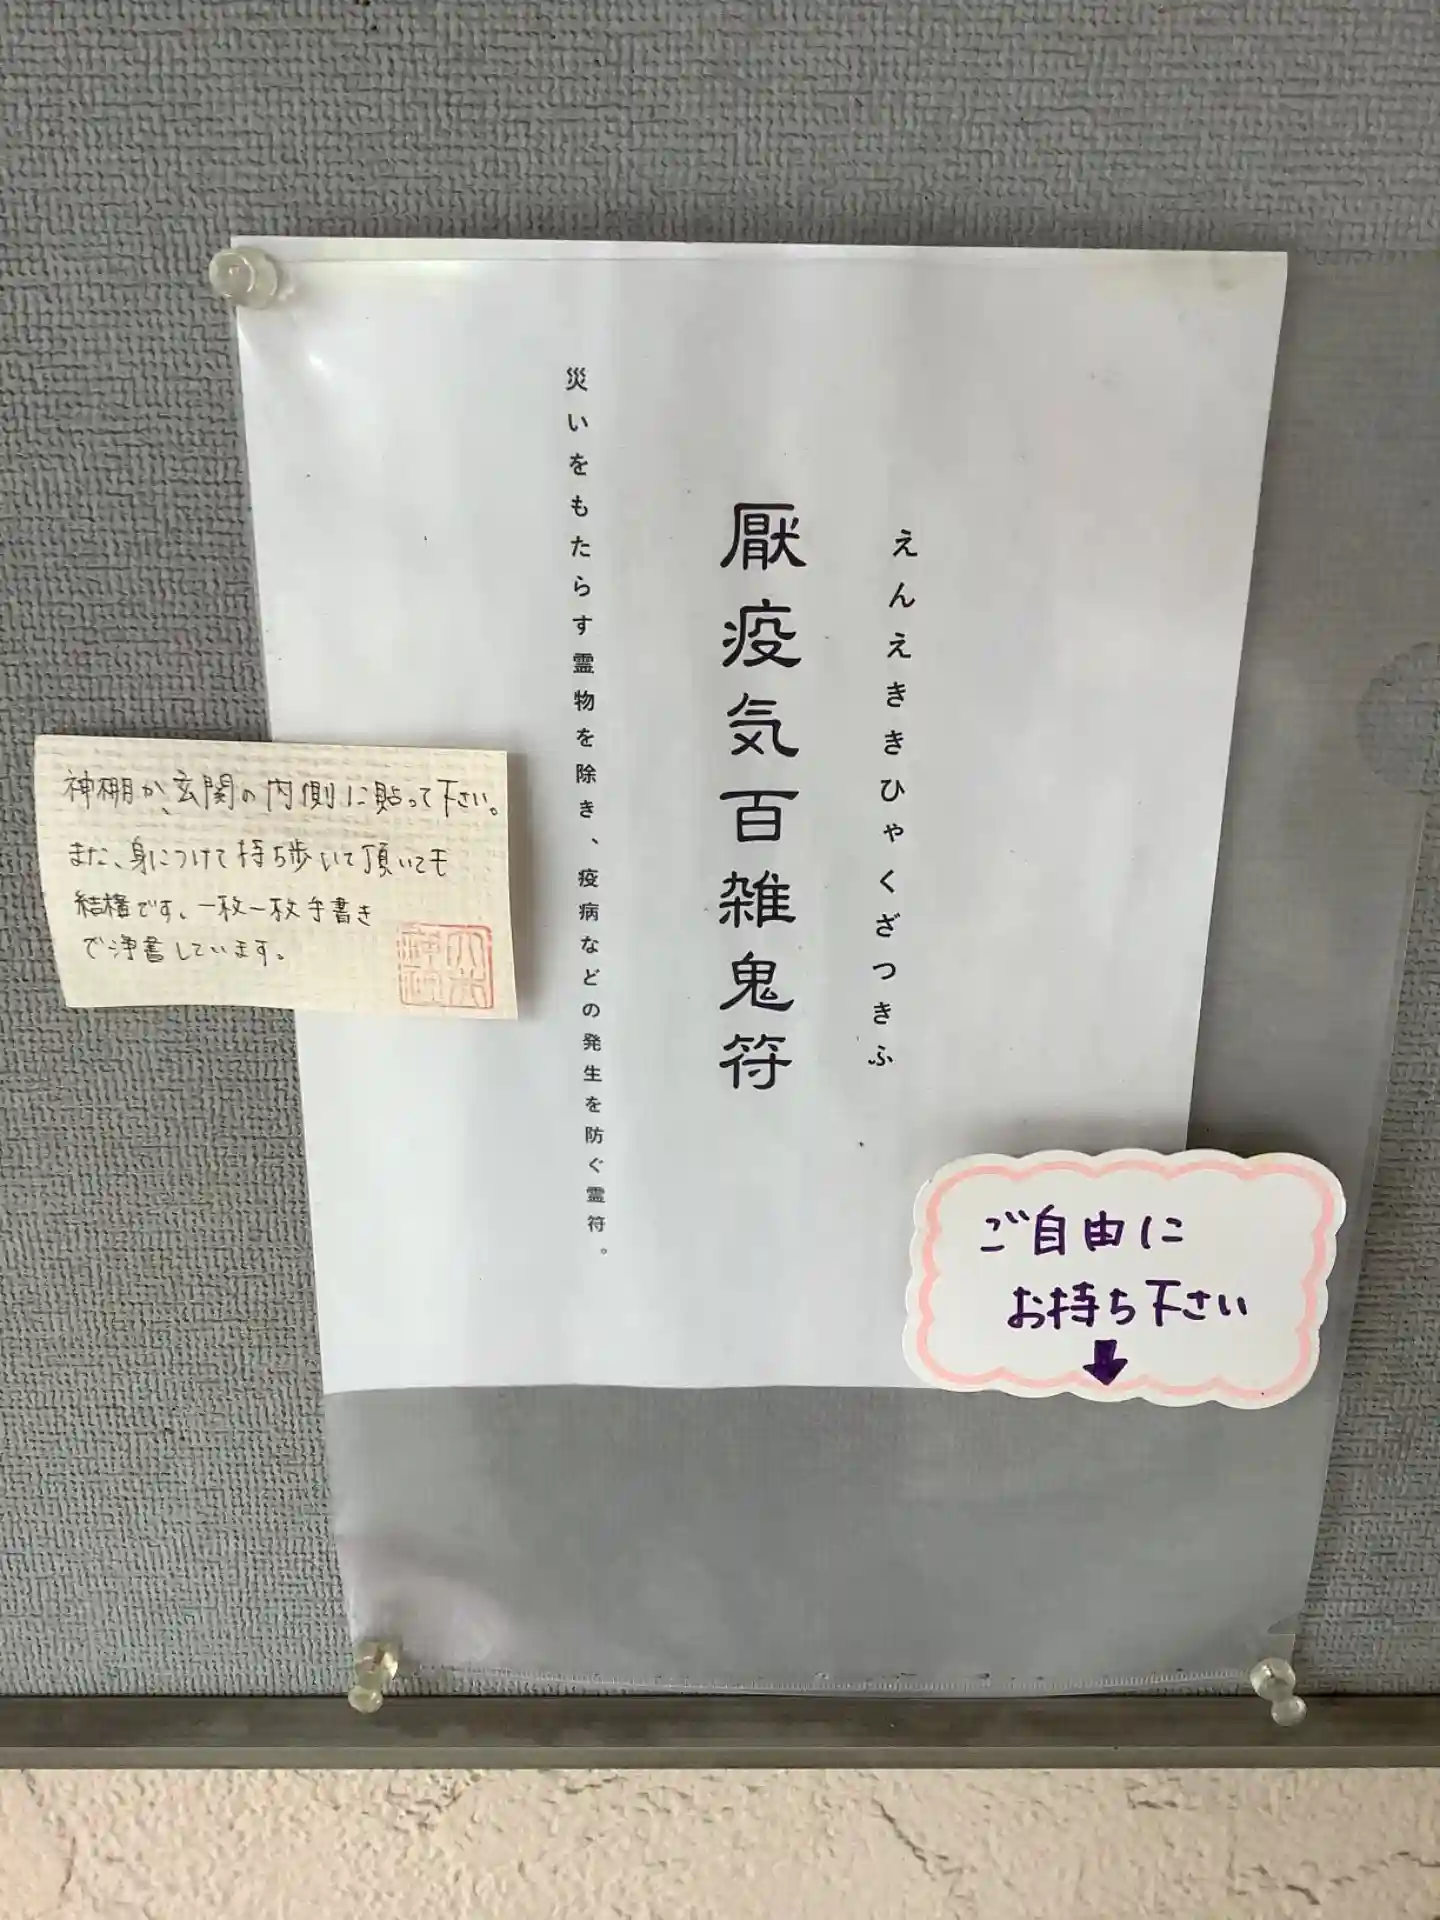 えんえききひゃくざつきふ
厭疫気百雑鬼符
災いをもたらす霊物を除き、疫病などの発生を防ぐ霊符。
神棚か、玄関の内側に貼って下さい。
また、身につけて持ち歩いて頂いても
結構です。一枚一枚手書き
で浄書しています。
ご自由に
お持ち下さい